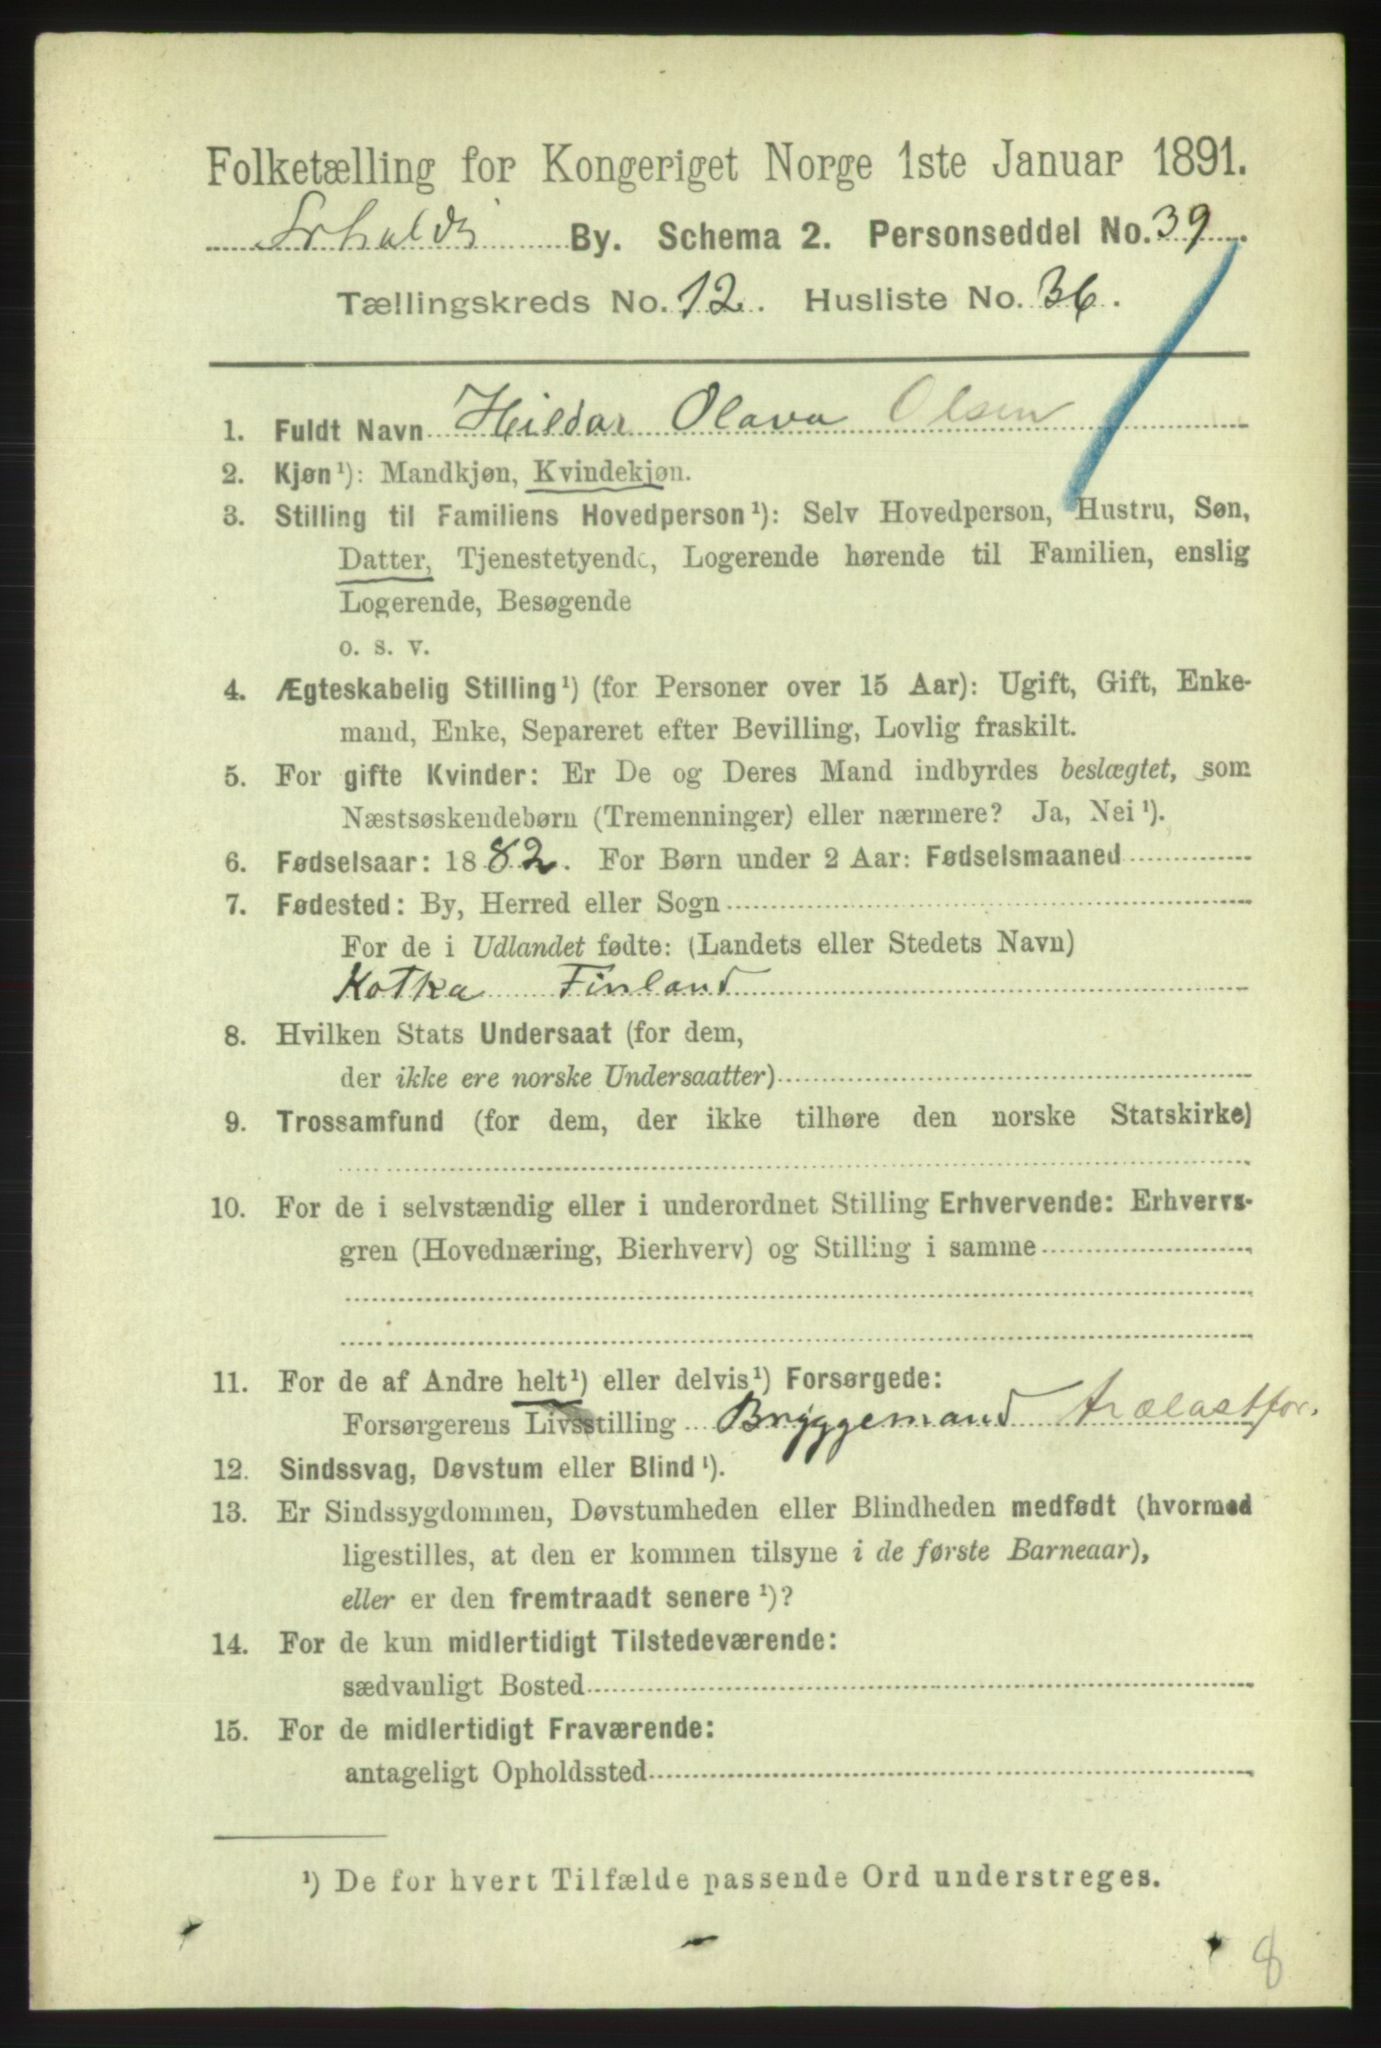 Folketælling for Kongeriget Norge 1ste Januar 1891.
By. Schema 2. Personseddel No. 39.
Tællingskreds No. 12. Husliste No. 36.
1. Fuldt Navn Hildar Olava Olsen
2. Kjøn¹): Mandkjøn, Kvindekjøn.
3. Stilling til Familiens Hovedperson¹): Selv Hovedperson, Hustru, Søn,
Datter, Tjenestetyende, Logerende hørende til Familien, enslig
Logerende, Besøgende
o. s. v.
4. Ægteskabelig Stilling¹) (for Personer over 15 Aar): Ugift, Gift, Enke-
mand, Enke, Separeret efter Bevilling, Lovlig fraskilt.
5. For gifte Kvinder: Er De og Deres Mand indbyrdes beslægtet, som
Næstsøskendebørn (Tremenninger) eller nærmere? Ja, Nei¹).
6. Fødselsaar: 1882. For Børn under 2 Aar: Fødselsmaaned
7. Fødested: By, Herred eller Sogn
For de i Udlandet fødte: (Landets eller Stedets Navn)
Kotka Finland
8. Hvilken Stats Undersaat (for dem,
der ikke ere norske Undersaatter)
9. Trossamfund (for dem, der ikke tilhøre den norske Statskirke)
10. For de i selvstændig eller i underordnet Stilling Erhvervende: Erhvervs-
gren (Hovednæring, Bierhverv) og Stilling i samme
11. For de af Andre helt¹) eller delvis¹) Forsørgede:
Forsørgerens Livsstilling Bryggemand trælastfor.
12. Sindssvag, Døvstum eller Blind¹).
13. Er Sindssygdommen, Døvstumheden eller Blindheden medfødt (hvormed
ligestilles, at den er kommen tilsyne i de første Barneaar),
eller er den fremtraadt senere¹)?
14. For de kun midlertidigt Tilstedeværende:
sædvanligt Bosted
15. For de midlertidigt Fraværende:
antageligt Opholdssted
¹) De for hvert Tilfælde passende Ord understreges.
8